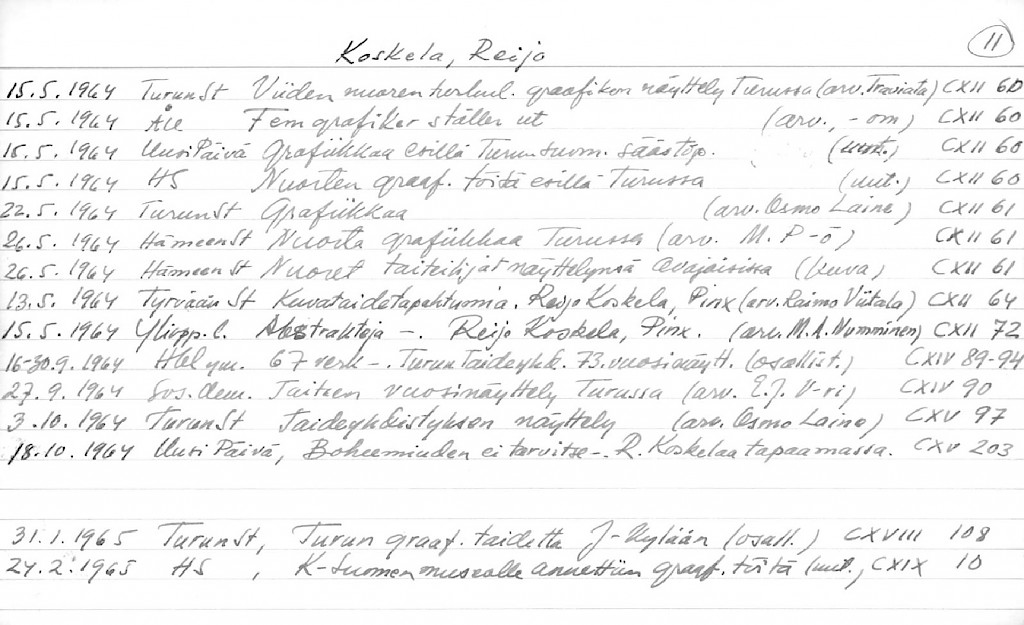 11
Koskela, Reijo
15.5.1964 TurunSt Viiden nuoren turkul. graafikon näyttely Turussa (arv. Traviata) CXII 60
15.5.1964 ÅU Fem grafiker ställer ut (arv., -om) CXII 60
15.5.1964 Uusi Päivä Grafiikkaa esillä Turun suom. säästöp. (uut.) CXII 60
15.5.1964 HS Nuorten graaf. töitä esillä Turussa (uut.) CXII 60
22.5.1964 TurunSt Grafiikkaa (arv. Osmo Laine) CXII 61
26.5.1964 HämeenSt Nuorta grafiikkaa Turussa (arv. M. P-ö) CXII 61
26.5.1964 HämeenSt Nuoret taiteilijat näyttelynsä avajaisissa (kuva) CXII 61
13.5.1964 Tyrvään St Kuvataidetapahtumia. Reijo Koskela, Pinx (arv. Raimo Viitala) CXII 64
15.5.1964 Yliopp.l. Abstrakteja -. Reijo Koskela, Pinx. (arv. M.A. Numminen) CXII 72
16-30.9.1964 Hbl ym. 67 verk -. Turun Taideyhd. 73. vuosinäytt. (osallist.) CXIV 89-94
27.9.1964 Sos.dem. Taiteen vuosinäyttely Turussa (arv. E.J. V-ri) CXIV 90
3.10.1964 TurunSt Taideyhdistyksen näyttely (arv. Osmo Laine) CXV 97
18.10.1964 Uusi Päivä, Boheemiuden ei tarvitse -. R. Koskelaa tapaamassa. CXV 203
31.1.1965 TurunSt, Turun graaf. taidetta J-kylään (osall.) CXVIII 108
24.2.1965 HS, K-Suomen museolle annettiin graaf. töitä (uut., CXIX 10